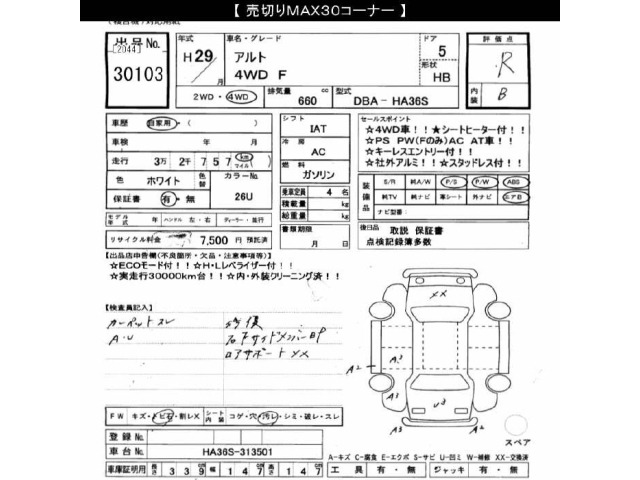 【 売切りMAX30コーナー 】
出品No.
(2044)
30103
年式
H29年
月
車名・グレード
アルト
4WD F
ドア
5
形状
HB
評価点
R
内装
B
2WD・4WD
排気量
660 cc
型式
DBA－HA36S
車歴
自家用・(　　)
車検 年 月
走行 3万 2千 7 5 7 km マイル
色 ホワイト 色替
カラーNo.
26U
保証書 有・無
シフト
IAT
冷房
AC
燃料
ガソリン
乗車定員 4 名
積載量 kg
総重量 kg
セールスポイント
☆4WD車！！☆シートヒーター付！！
☆PS PW(Fのみ)AC AT車！！
☆キーレスエントリー付！！
☆社外アルミ！！☆スタッドレス付！！
装備品
S/R 純A/W P/S P/W ABS
純TV 純ナビ 革シート 外ナビ エアB
ナビ型番
モデル年式 年 ハンドル 左・右 ディーラー・並行
リサイクル料金 7,500 円 預託済
書類期限
月 日
後日品
取説 保証書
点検記録簿多数
【出品店申告欄(不良箇所・欠品・注意事項等)】
☆ECOモード付！！☆H・Lレベライザー付！！
☆実走行30000km台！！☆内・外装クリーニング済！！
【検査員記入】
カーペットスレ
A・U
修復
ロアサポート XX
XX
A2
A3
A2
U3
A3
A3
スペア
FW キズ・トビ石・割レX シート内装 コゲ・穴・汚レ・シミ・破レ・スレ
登録No.
車台No. HA36S-313501
A-キズ C-腐食 E-エクボ S-サビ U-凹ミ W-補修 XX-交換済
車庫証明用 長さ 3 3 9 幅 1 4 7 高さ 1 4 7
工具 有・無 ジャッキ 有・無